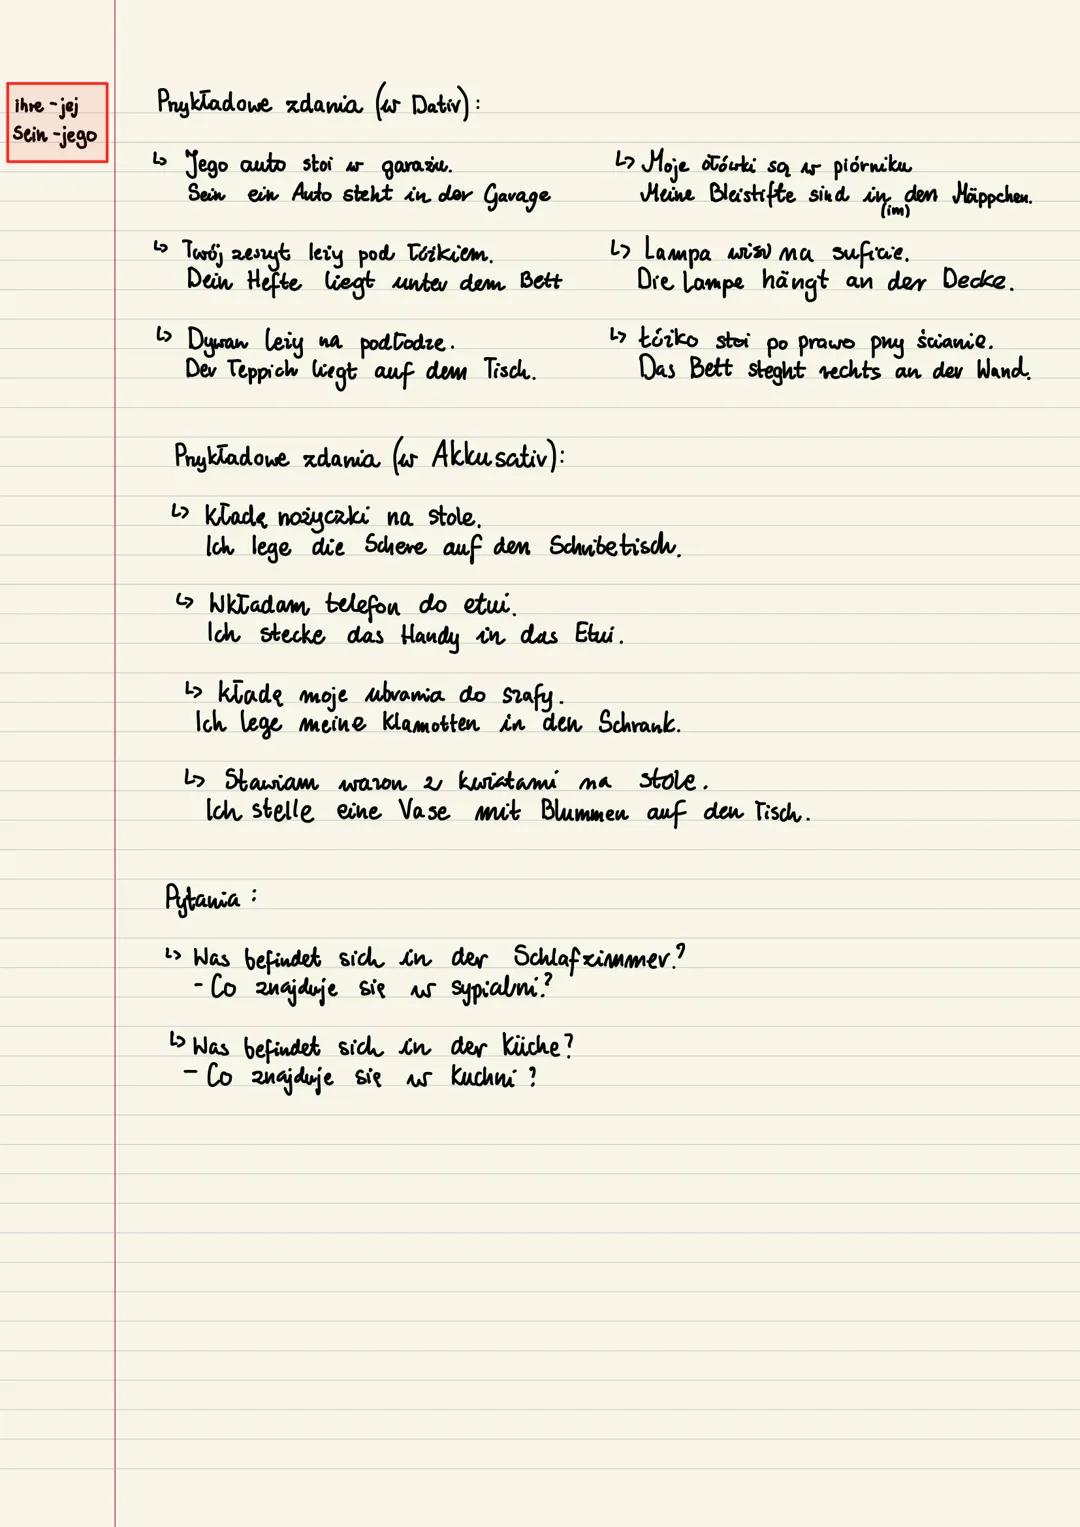 ihre - jej
Sein - jego
Przykładowe zdania (w Dativ):
↳ Jego auto stoi w garażu.
Sein ein Auto steht in der Garage
↳ Twój zeszyt leży pod łóżkiem.
Dein Hefte liegt unter dem Bett
↳ Dywan leży na podłodze.
Der Teppich liegt auf dem Tisch.
↳ Moje ołówki są w piórniku
Meine Bleistifte sind in den Mäppchen.
(im)
↳ Lampa wisi na suficie.
Die Lampe hängt an der Decke.
↳ Łóżko stoi po prawo przy ścianie.
Das Bett steght rechts an der Wand.
Przykładowe zdania (w Akkusativ):
↳ Kładę nożyczki na stole.
Ich lege die Schere auf den Schribetisch.
↳ Wkładam telefon do etui.
Ich stecke das Handy in das Etui.
↳ Kładę moje ubrania do szafy.
Ich lege meine Klamotten in den Schrank.
↳ Stawiam wazon z kwiatami na stole.
Ich stelle eine Vase mit Blummen auf den Tisch.
Pytania:
↳ Was befindet sich in der Schlafzimmer?
- Co znajduje się w sypialni?
↳ Was befindet sich in der Küche?
- Co znajduje się w Kuchni?